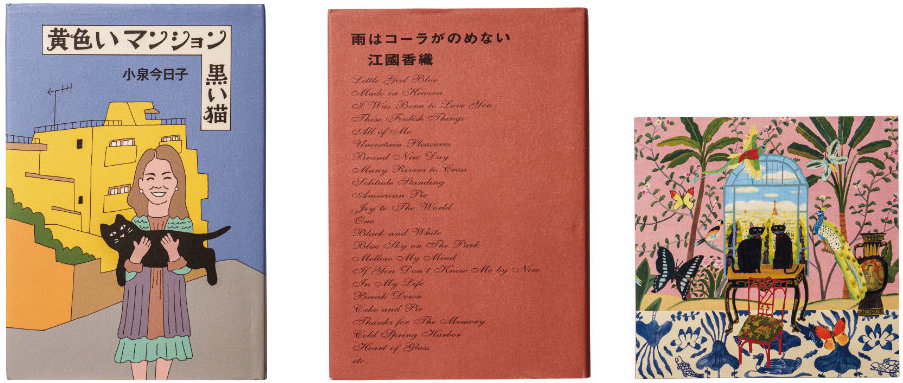 黄色いマンション
黒い猫
小泉今日子
雨はコーラがのめない
江國香織
Little Girl Blue
Made in Heaven
I Was Born to Love You
These Foolish Things
All of Me
Uncertain Pleasures
Brand New Day
Many Rivers to Cross
Solitude Standing
American Pie
Joy to The World
One
Black and White
Blue Sky on The Park
Mellow My Mind
If You Don't Know Me by Now
In My Life
Break Down
Cake and Pie
Thanks for The Memory
Cold Spring Harbor
Heart of Glass
etc